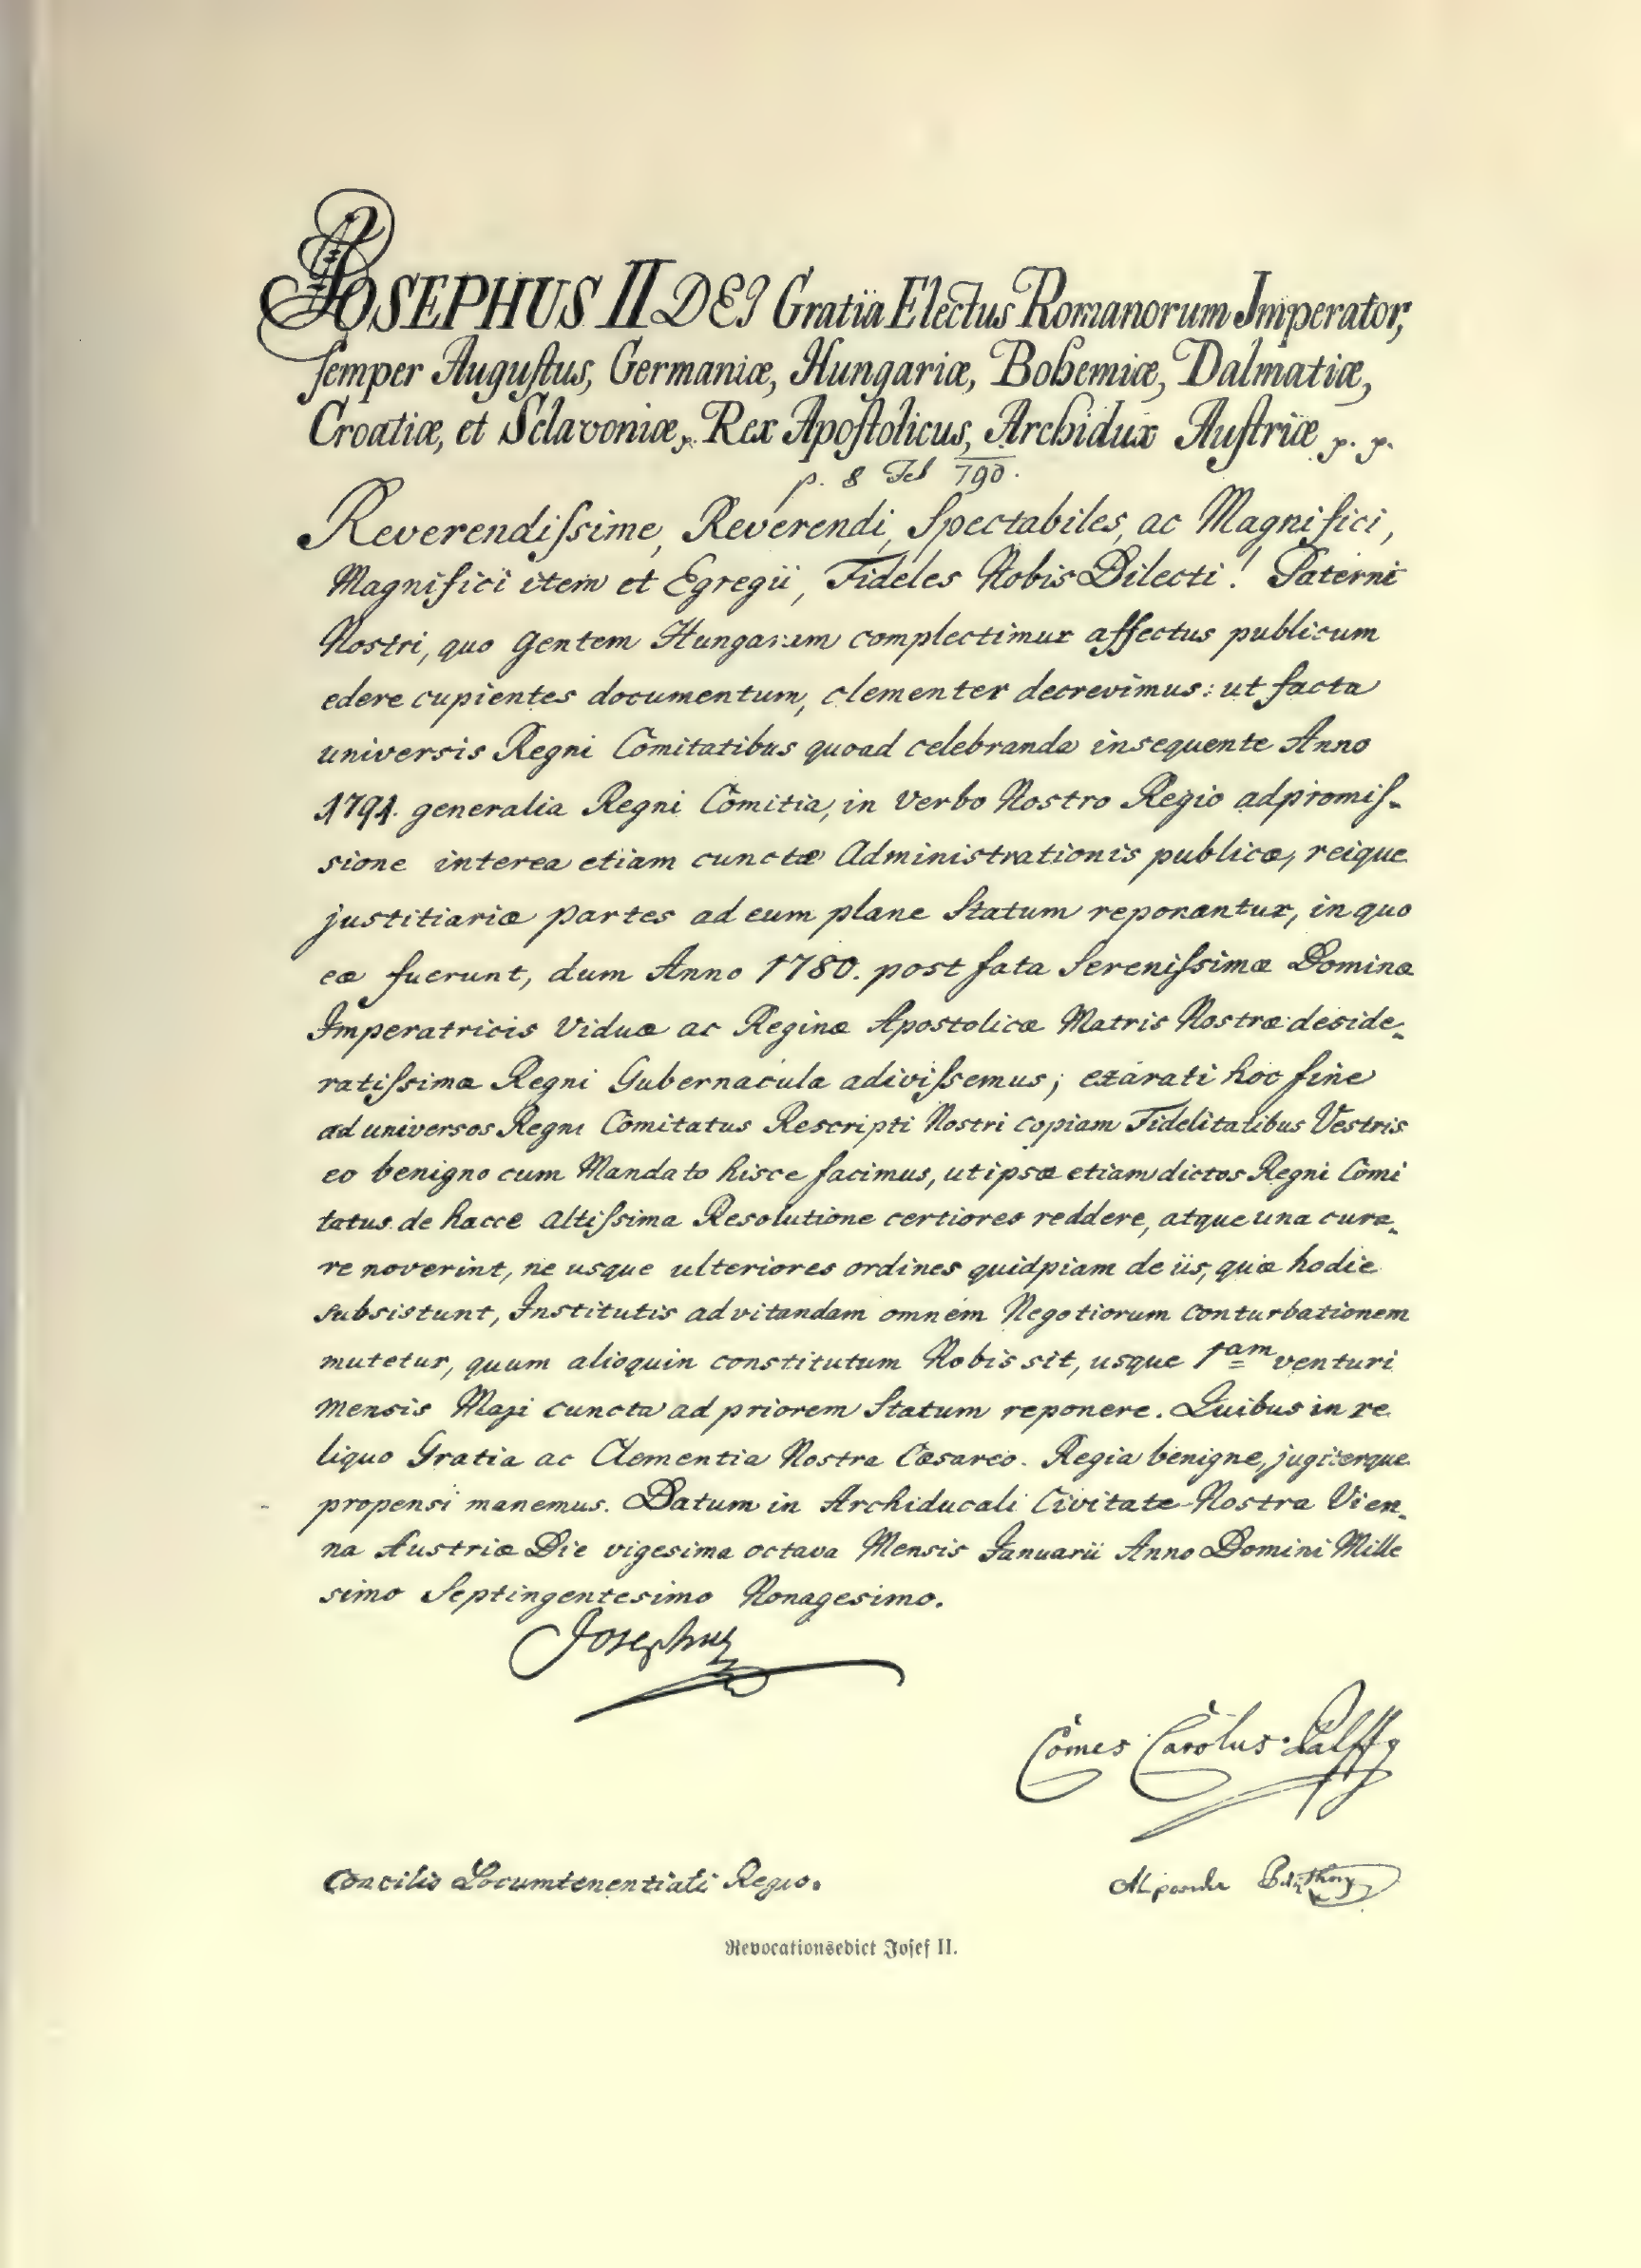 JOSEPHUS II DEI Gratia Electus Romanorum Imperator,
semper Auguſtus, Germaniæ, Hungariæ, Bohemiæ, Dalmatiæ,
Croatiæ, et Sclavoniæ, Rex Apoſtolicus, Archidux Auſtriæ p. p.
p. 8 Feb 790.
Reverendiſsime, Reverendi, Spectabiles, ac Magnifici,
Magnifici item et Egregii, Fideles Nobis Dilecti! Paterni
Nostri, quo gentem Hungaram complectimur affectus publicum
edere cupientes documentum, clementer decrevimus: ut facta
universis Regni Comitatibus quoad celebranda insequente Anno
1791. generalia Regni Comitia, in verbo Nostro Regio adpromiſ-
sione interea etiam cunctæ Administrationis publicæ, reique
justitiariæ partes ad eum plane Statum reponantur, in quo
eæ fuerunt, dum Anno 1780. post fata Sereniſsimæ Dominæ
Imperatricis Viduæ ac Reginæ Apostolicæ Matris Nostræ deside-
ratiſsimæ Regni Gubernacula adiviſsemus; exarati hoc fine
ad universos Regni Comitatus Rescripti Nostri copiam Fidelitatibus Vestris
eo benigno cum Mandato hisce facimus, ut ipsæ etiam dictos Regni Comi
tatus de hacce altiſsima Resolutione certiores reddere, atque una cura-
re noverint, ne usque ulteriores ordines quidpiam de iis, quæ hodie
subsistunt, Institutis ad vitandam omnem Negotiorum conturbationem
mutetur, quum alioquin constitutum Nobis sit, usque 1am venturi
mensis Maji cuncta ad priorem Statum reponere. Quibus in re
liquo Gratia ac Clementia Nostra Cæsareo-Regia benigne, jugiterque
propensi manemus. Datum in Archiducali Civitate Nostra Vien-
na Austriæ Die vigesima octava Mensis Januarii Anno Domini Mille
simo Septingentesimo Nonagesimo.
Josephus
Comes Carolus Palffy
Concilio Locumtenentiali Regio.
Revocationsedict Josef II.